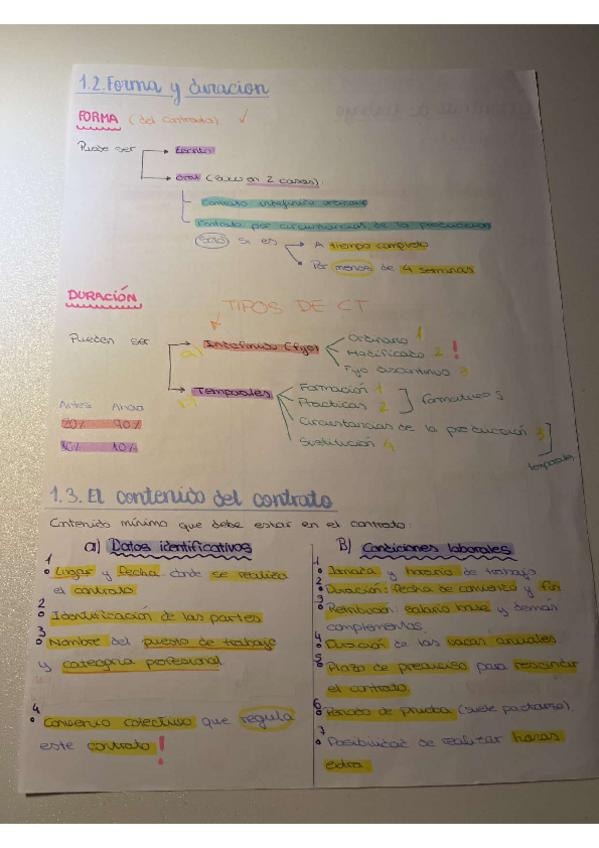 1.2. Forma y duracion
FORMA (del contrato)
Puede ser
Escrito
Oral (solo en 2 casos):
Contrato indefinido ordinario
Contrato por circunstancias de la produccion
Solo si es
A tiempo completo
Por menos de 4 semanas
DURACIÓN
TIPOS DE CT
Pueden ser
a) Indefinido (fijo)
Ordinario 1
Modificado 2 !
Fijo discontinuo 3
Temporales
Formación 1
Practicas 2
formativos
Circunstancias de la producción 3
Sustitución 4
temporales
Antes Ahora
90%
10%
1.3. El contenido del contrato
Contenido mínimo que debe estar en el contrato:
a) Datos identificativos
1 Lugar y fecha donde se realiza
el contrato
2 Identificación de las partes
3 Nombre del puesto de trabajo
y categoria profesional
4 Convenio colectivo que regula
este contrato !
B) Condiciones laborales
1 Jornada y horario de trabajo
2 Duración: fecha de comienzo y fin
3 Retribución: salario base y demás
complementos
4 Duración de las vacas anuales
5 Plazo de preaviso para rescindir
el contrato
6 Periodo de prueba (suele pactarse)
7 Posibilidad de realizar horas
extra